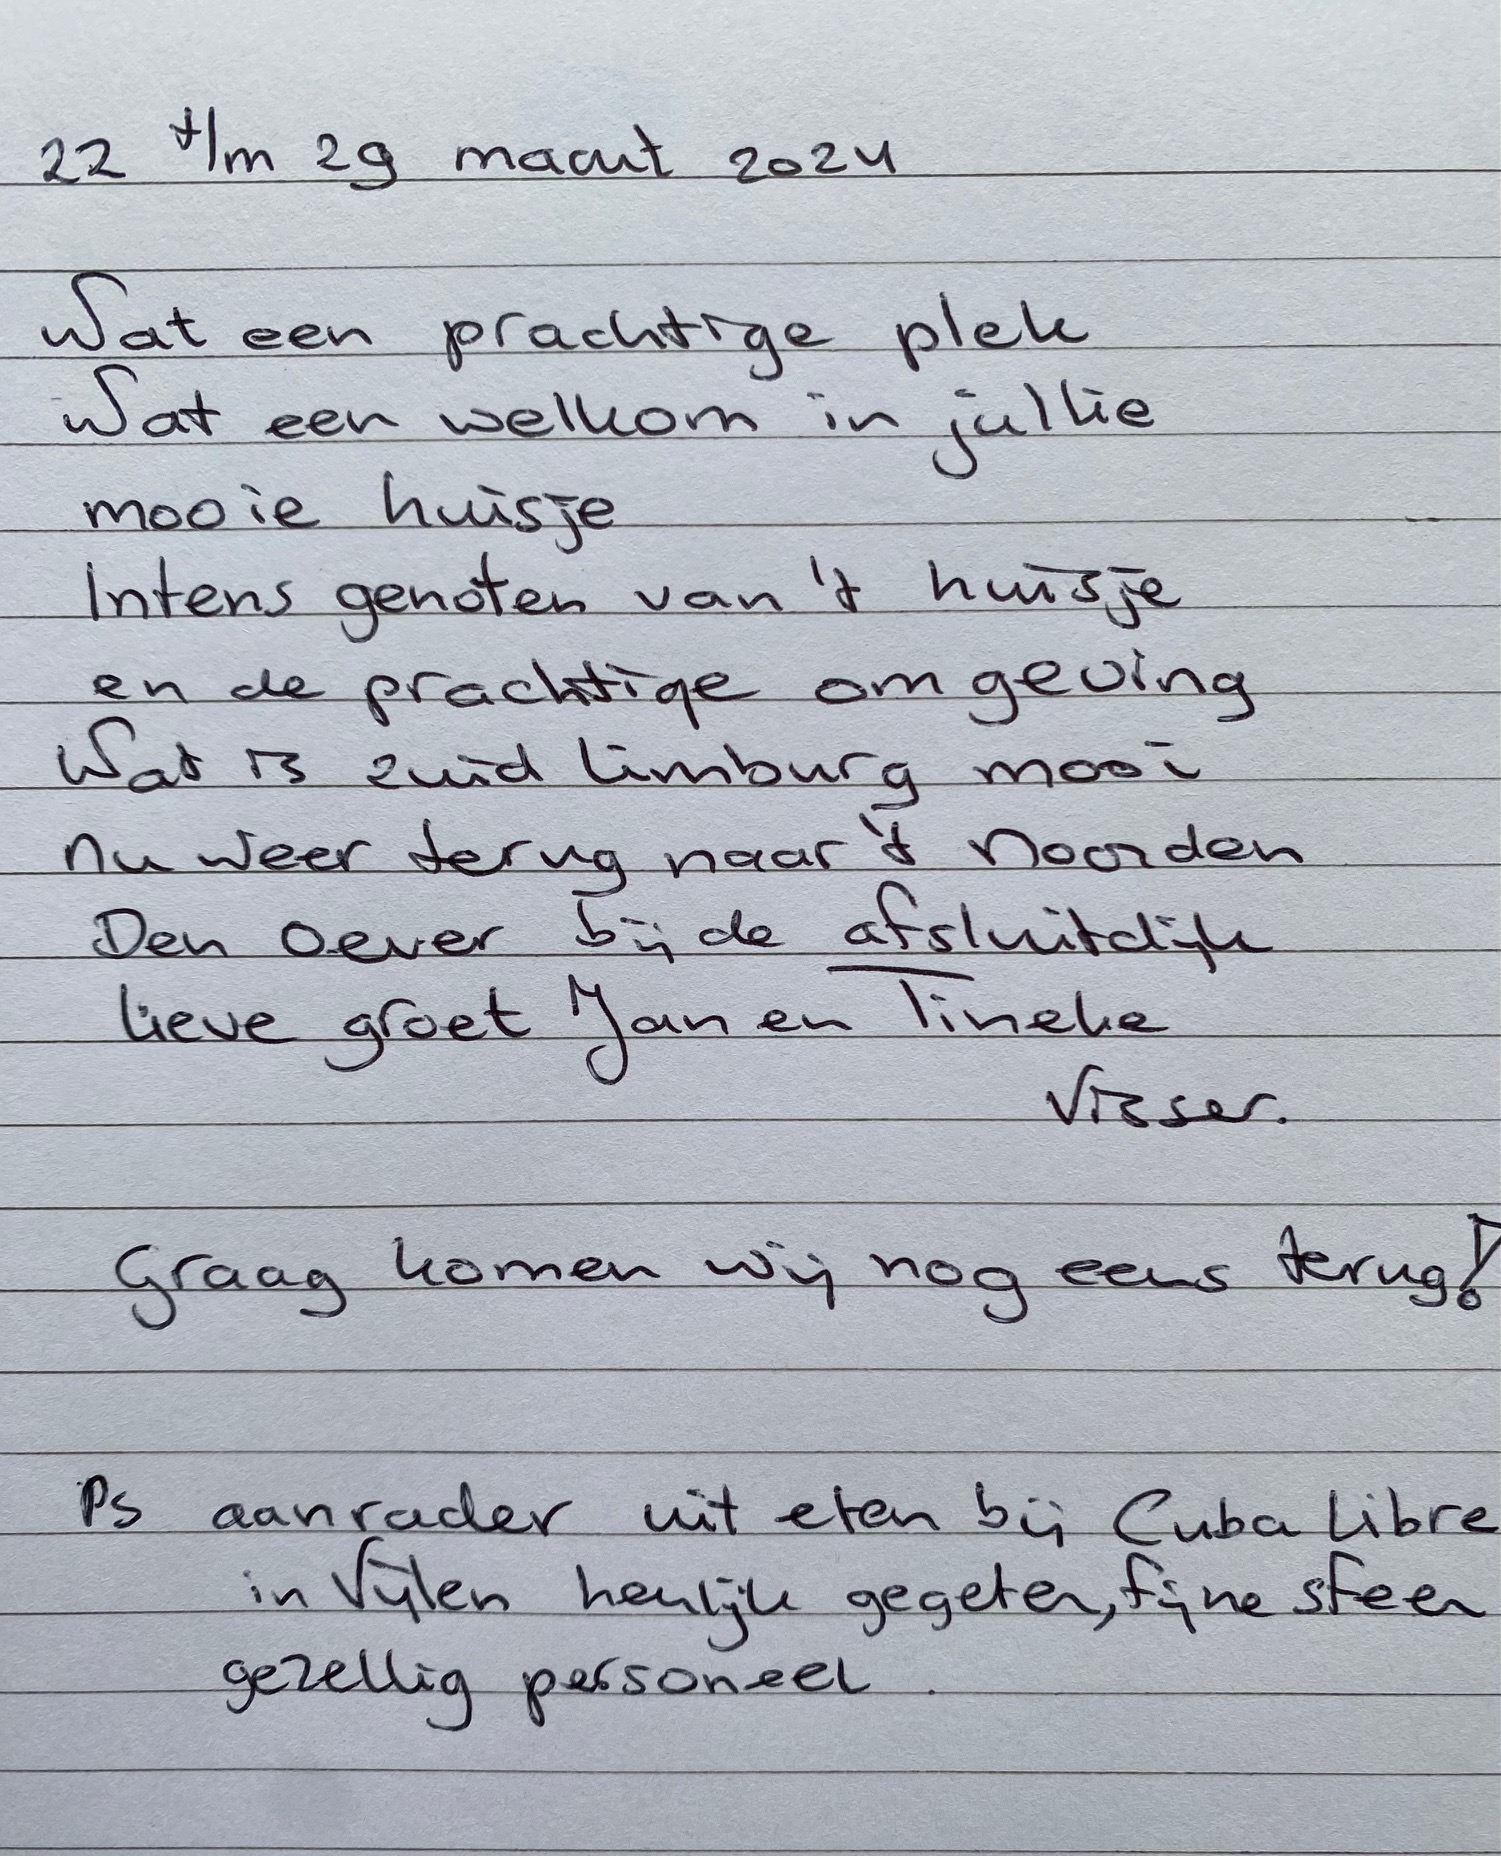 22 t/m 29 maart 2024
Wat een prachtige plek
Wat een welkom in jullie
mooie huisje
Intens genoten van 't huisje
en de prachtige omgeving
Wat is zuid limburg mooi
nu weer terug naar 't Noorden
Den Oever bij de afsluitdijk
lieve groet Jan en Tineke
Visser.
Graag komen wij nog eens terug!
Ps aanrader uit eten bij Cuba Libre
in Vijlen heerlijk gegeten, fijne sfeer
gezellig personeel.